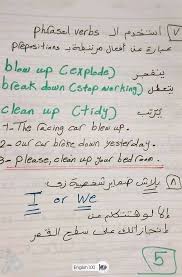 ٧ استخدم الـ phrasal verbs
عبارة عن أفعال مرتبطة بـ prepositions
blow up (explode) ينفجر
break down (stop working) يتعطل
clean up (tidy) يُرتب
1- The racing car blew up.
2- our car broke down yesterday.
3- please, clean up your bedroom.
٨ بلاش ضماير شخصية زي
I or We
إلا لو هتتكلم عن
إنجازاتك على سطح القمر
5
English 100